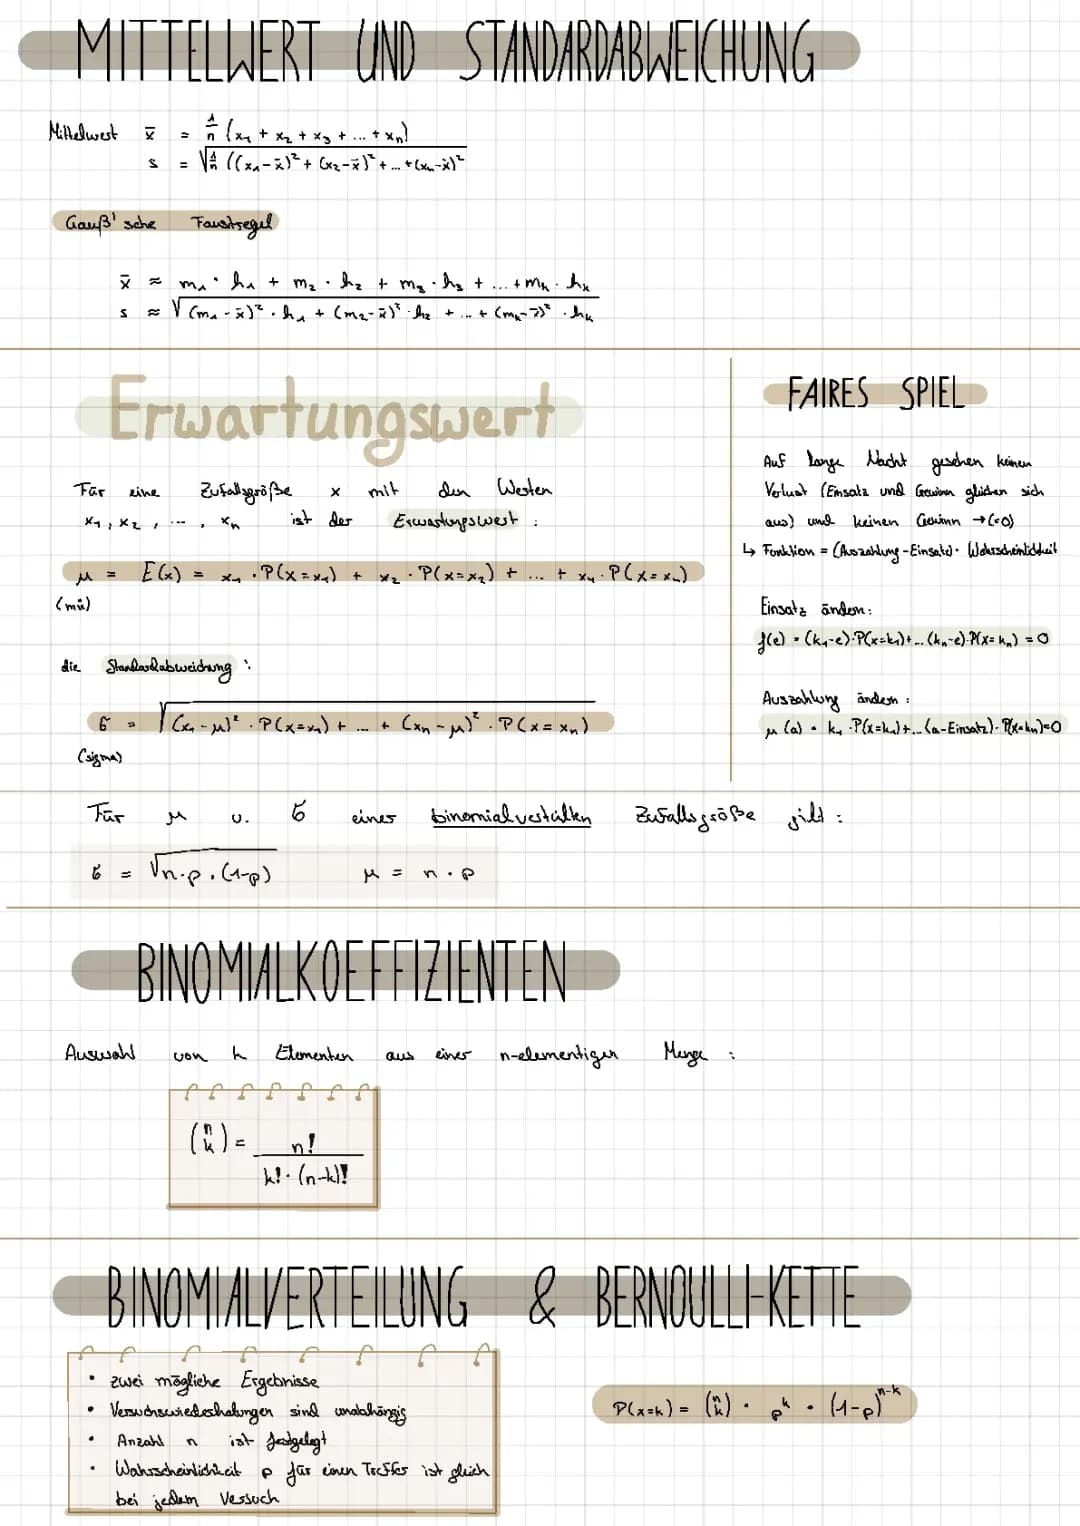 MITTELWERT UND STANDARDABWEICHUNG
Mittelwert x̄ = 1/n (x₁ + x₂ + x₃ + ... + xₙ)
s = √(1/n ((x₁-x̄)² + (x₂-x̄)² + ... + (xₙ-x̄)²
Gauß'sche Faustregel
x̄ ≈ m₁ · h₁ + m₂ · h₂ + m₃ · h₃ + ... + mₖ · hₖ
s ≈ √((m₁-x̄)² · h₁ + (m₂-x̄)² · h₂ + ... + (mₖ-x̄)² · hₖ
Erwartungswert
Für eine Zufallsgröße x mit den Werten
x₁, x₂, ..., xₙ ist der Erwartungswert :
μ = E(x) = x₁ · P(x=x₁) + x₂ · P(x=x₂) + ... + xₙ · P(x=xₙ)
(mü)
die Standardabweichung :
σ = √((x₁-μ)² · P(x=x₁) + ... + (xₙ-μ)² · P(x=xₙ)
(sigma)
FAIRES SPIEL
Auf lange gesehen keinen
Verlust (Einsatz und Gewinn gleichen sich
aus) und keinen Gewinn → (=0)
↳ Funktion = (Auszahlung-Einsatz) · Wahrscheinlichkeit
Einsatz ändern:
f(e) = (k₁-e)·P(x=k₁)+...(kₙ-e)·P(x=kₙ) = 0
Auszahlung ändern :
μ(a) = k₁ · P(x=k₁)+...(a-Einsatz)·P(x=kₙ)=0
Für μ u. σ einer binomialverteilten Zufallsgröße gilt :
σ = √(n·p·(1-p)) μ = n · p
BINOMIALKOEFFIZIENTEN
Auswahl von k Elementen aus einer n-elementigen Menge :
(n k) = n!
k! · (n-k)!
BINOMIALVERTEILUNG & BERNOULLI-KETTE
• zwei mögliche Ergebnisse
• Versuchswiederholungen sind unabhängig
• Anzahl n ist festgelegt
• Wahrscheinlichkeit p für einen Treffer ist gleich
bei jedem Versuch
P(x=k) = (n k) · pᵏ · (1-p)ⁿ⁻ᵏ